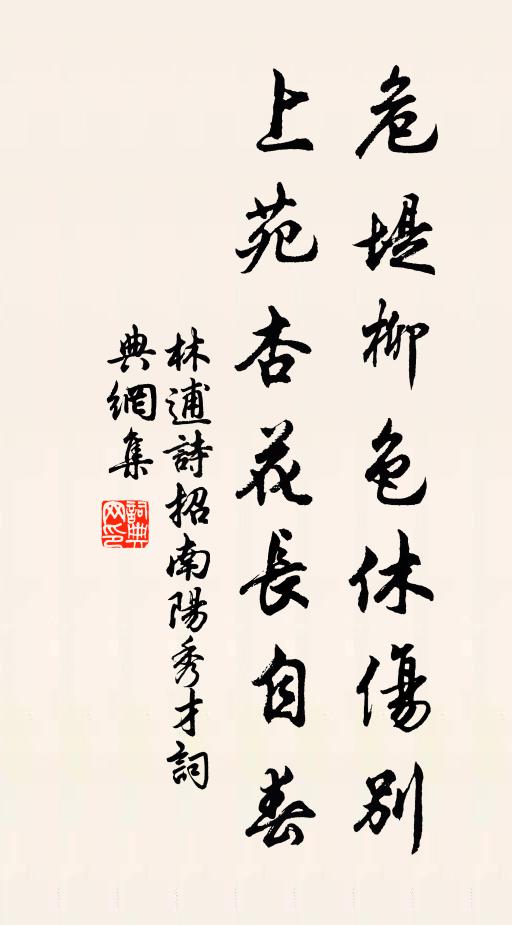 危堤柳色休傷別
上苑杏花長自春
林逋詩招南陽秀才詞
典網集
詞典網印